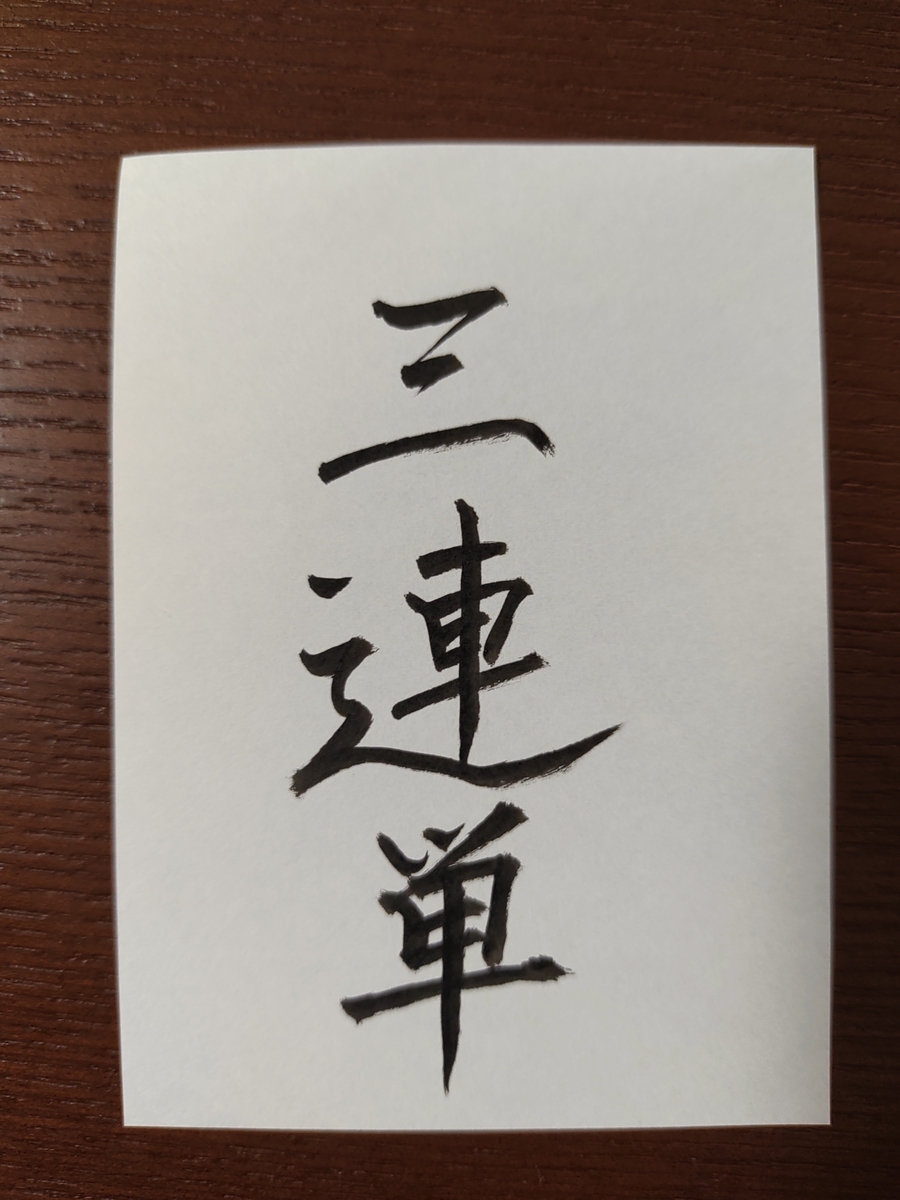 三連単